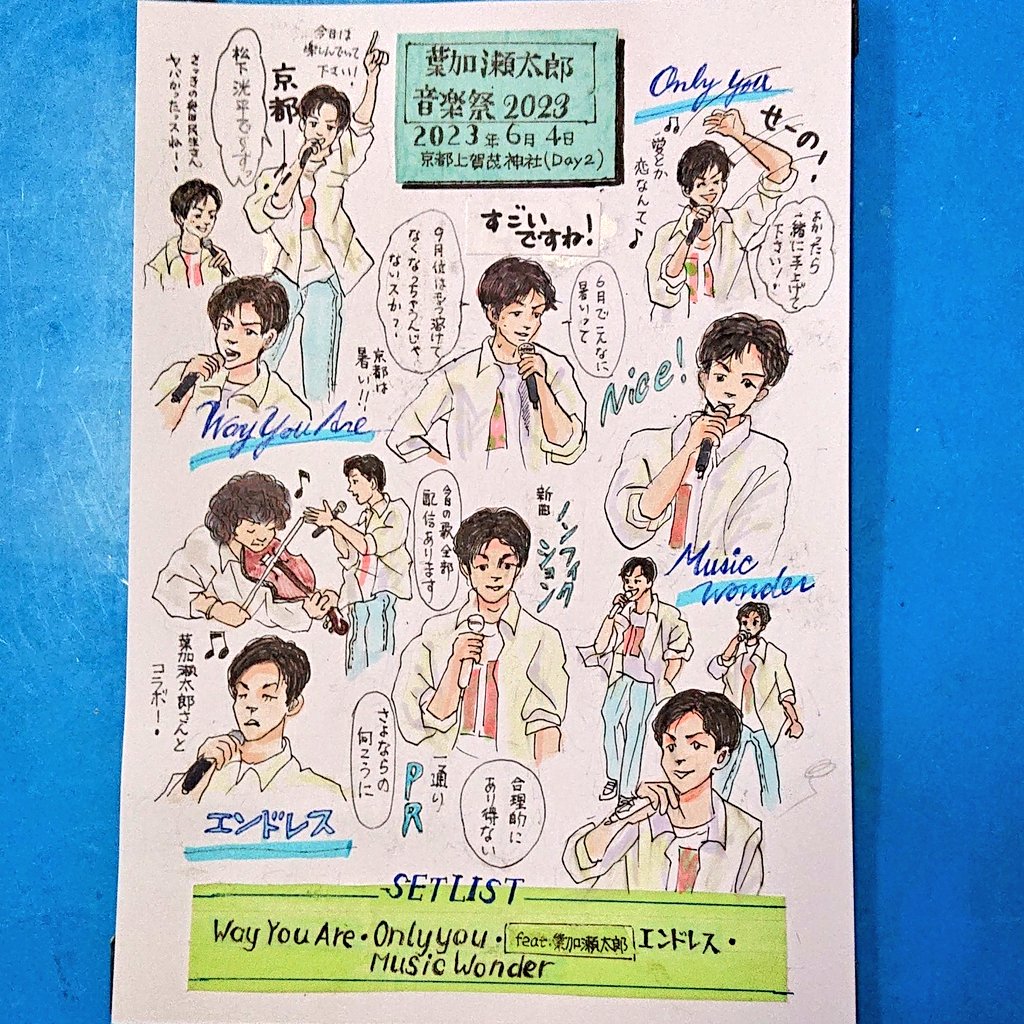 葉加瀬太郎
音楽祭 2023
2023年6月4日
京都上賀茂神社(Day2)
今日は
楽しんでって
下さい!
京都ー!
松下洸平でーすっ
さっきの奥田民生さん
ヤバかったっスねー!
Only you
せーの!
愛とか
恋なんて
よかったら
一緒に手上げて
下さい!
すごい
ですね!
6月でこんなに
暑いって
9月位は
なくなっちゃうんじゃ
ないスか?
京都は
暑い!!
Way You Are
Nice!
葉加瀬太郎さんと
コラボー!
エンドレス
今日の歌全部
配信あります
新曲
ノンフィク
ション
さよならの
向こうに
一通り
PR
合理的に
あり得ない
Music
wonder
SETLIST
Way You Are・Only you・feat.葉加瀬太郎 エンドレス・
Music Wonder